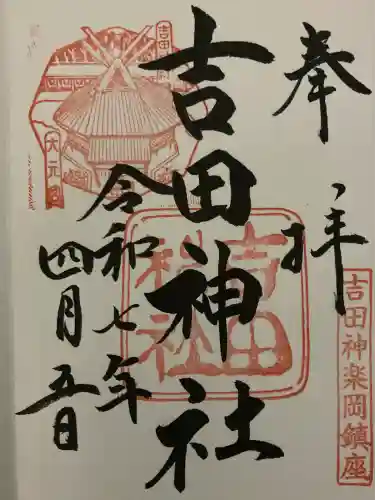 奉拝
吉田神楽岡鎮座
吉田神社
吉田神社
令和七年
四月五日
吉田
大元宮